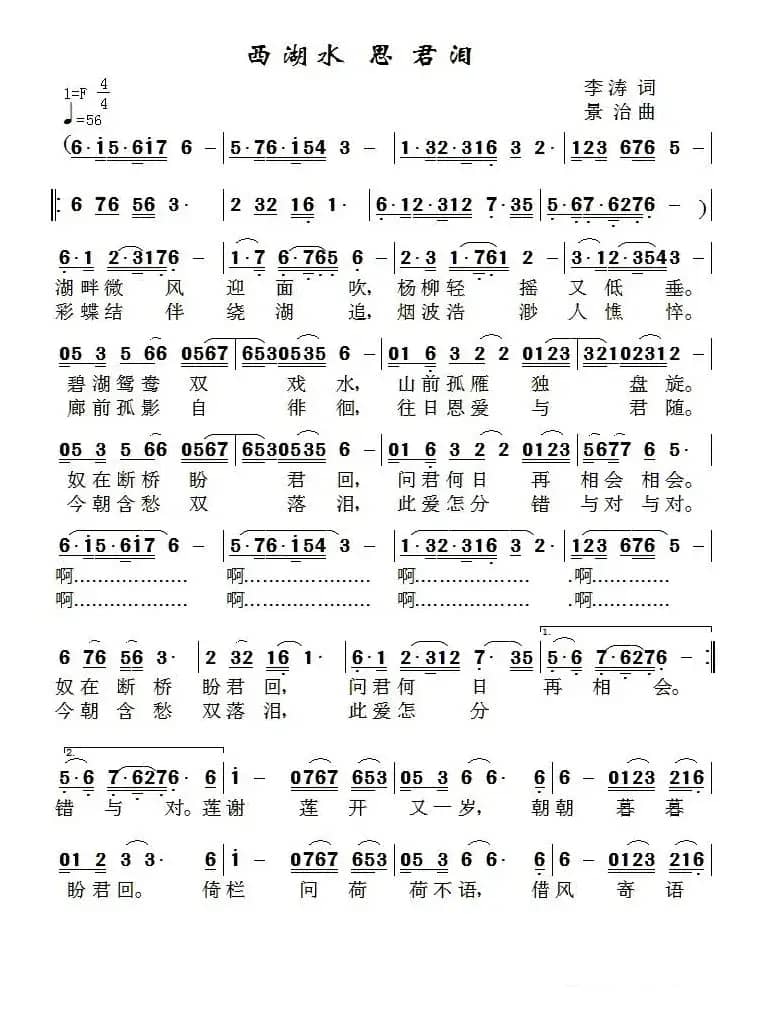 西湖水 思君泪
1=F 4/4
李涛 词
♩=56
景治曲
(6·i5·6i7 6 - | 5·76·i54 3 - | 1·32·316 3 2· | 123 676 5 - |
‖: 6 76 56 3· | 2 32 16 1· | 6·12·312 7·35 | 5·67·6276 - )
6·1 2·3176 - | 1·7 6·765 6 - | 2·3 1·761 2 - | 3·12·3543 - |
湖畔微 风 迎 面 吹, 杨柳轻 摇 又 低 垂。
彩蝶结 伴 绕 湖 追, 烟波浩 渺 人 憔 悴。
05 3 5 66 0567 | 6530535 6 - | 01 6 3 2 2 0123 | 32102312 - |
碧湖鸳鸯 双 戏 水, 山前孤雁 独 盘 旋。
廊前孤影 自 徘 徊, 往日恩爱 与 君 随。
05 3 5 66 0567 | 6530535 6 - | 01 6 3 2 2 0123 | 5677 6 5· |
奴在断桥 盼 君 回, 问君何日 再 相会 相会。
今朝含愁 双 落 泪, 此爱怎分 错 与对 与对。
6·i5·6i7 6 - | 5·76·i54 3 - | 1·32·316 3 2· | 123 676 5 - |
啊................... 啊................... 啊................... .啊..............
啊................... 啊................... 啊................... .啊..............
1.
6 76 56 3· | 2 32 16 1· | 6·1 2·312 7· 35 | 5·6 7·6276 - :‖
奴在 断 桥 盼君 回, 问君何 日 再 相 会。
今朝 含 愁 双落 泪, 此爱怎 分
2.
5·6 7·6276· 6 | i - 0767 653 | 05 3 6 6· 6 | 6 - 0123 216 |
错 与 对。莲谢 莲 开 又一岁, 朝朝 暮 暮
01 2 3 3· 6 | i - 0767 653 | 05 3 6 6· 6 | 6 - 0123 216 |
盼君回。 倚栏 问 荷 荷不语, 借风 寄 语